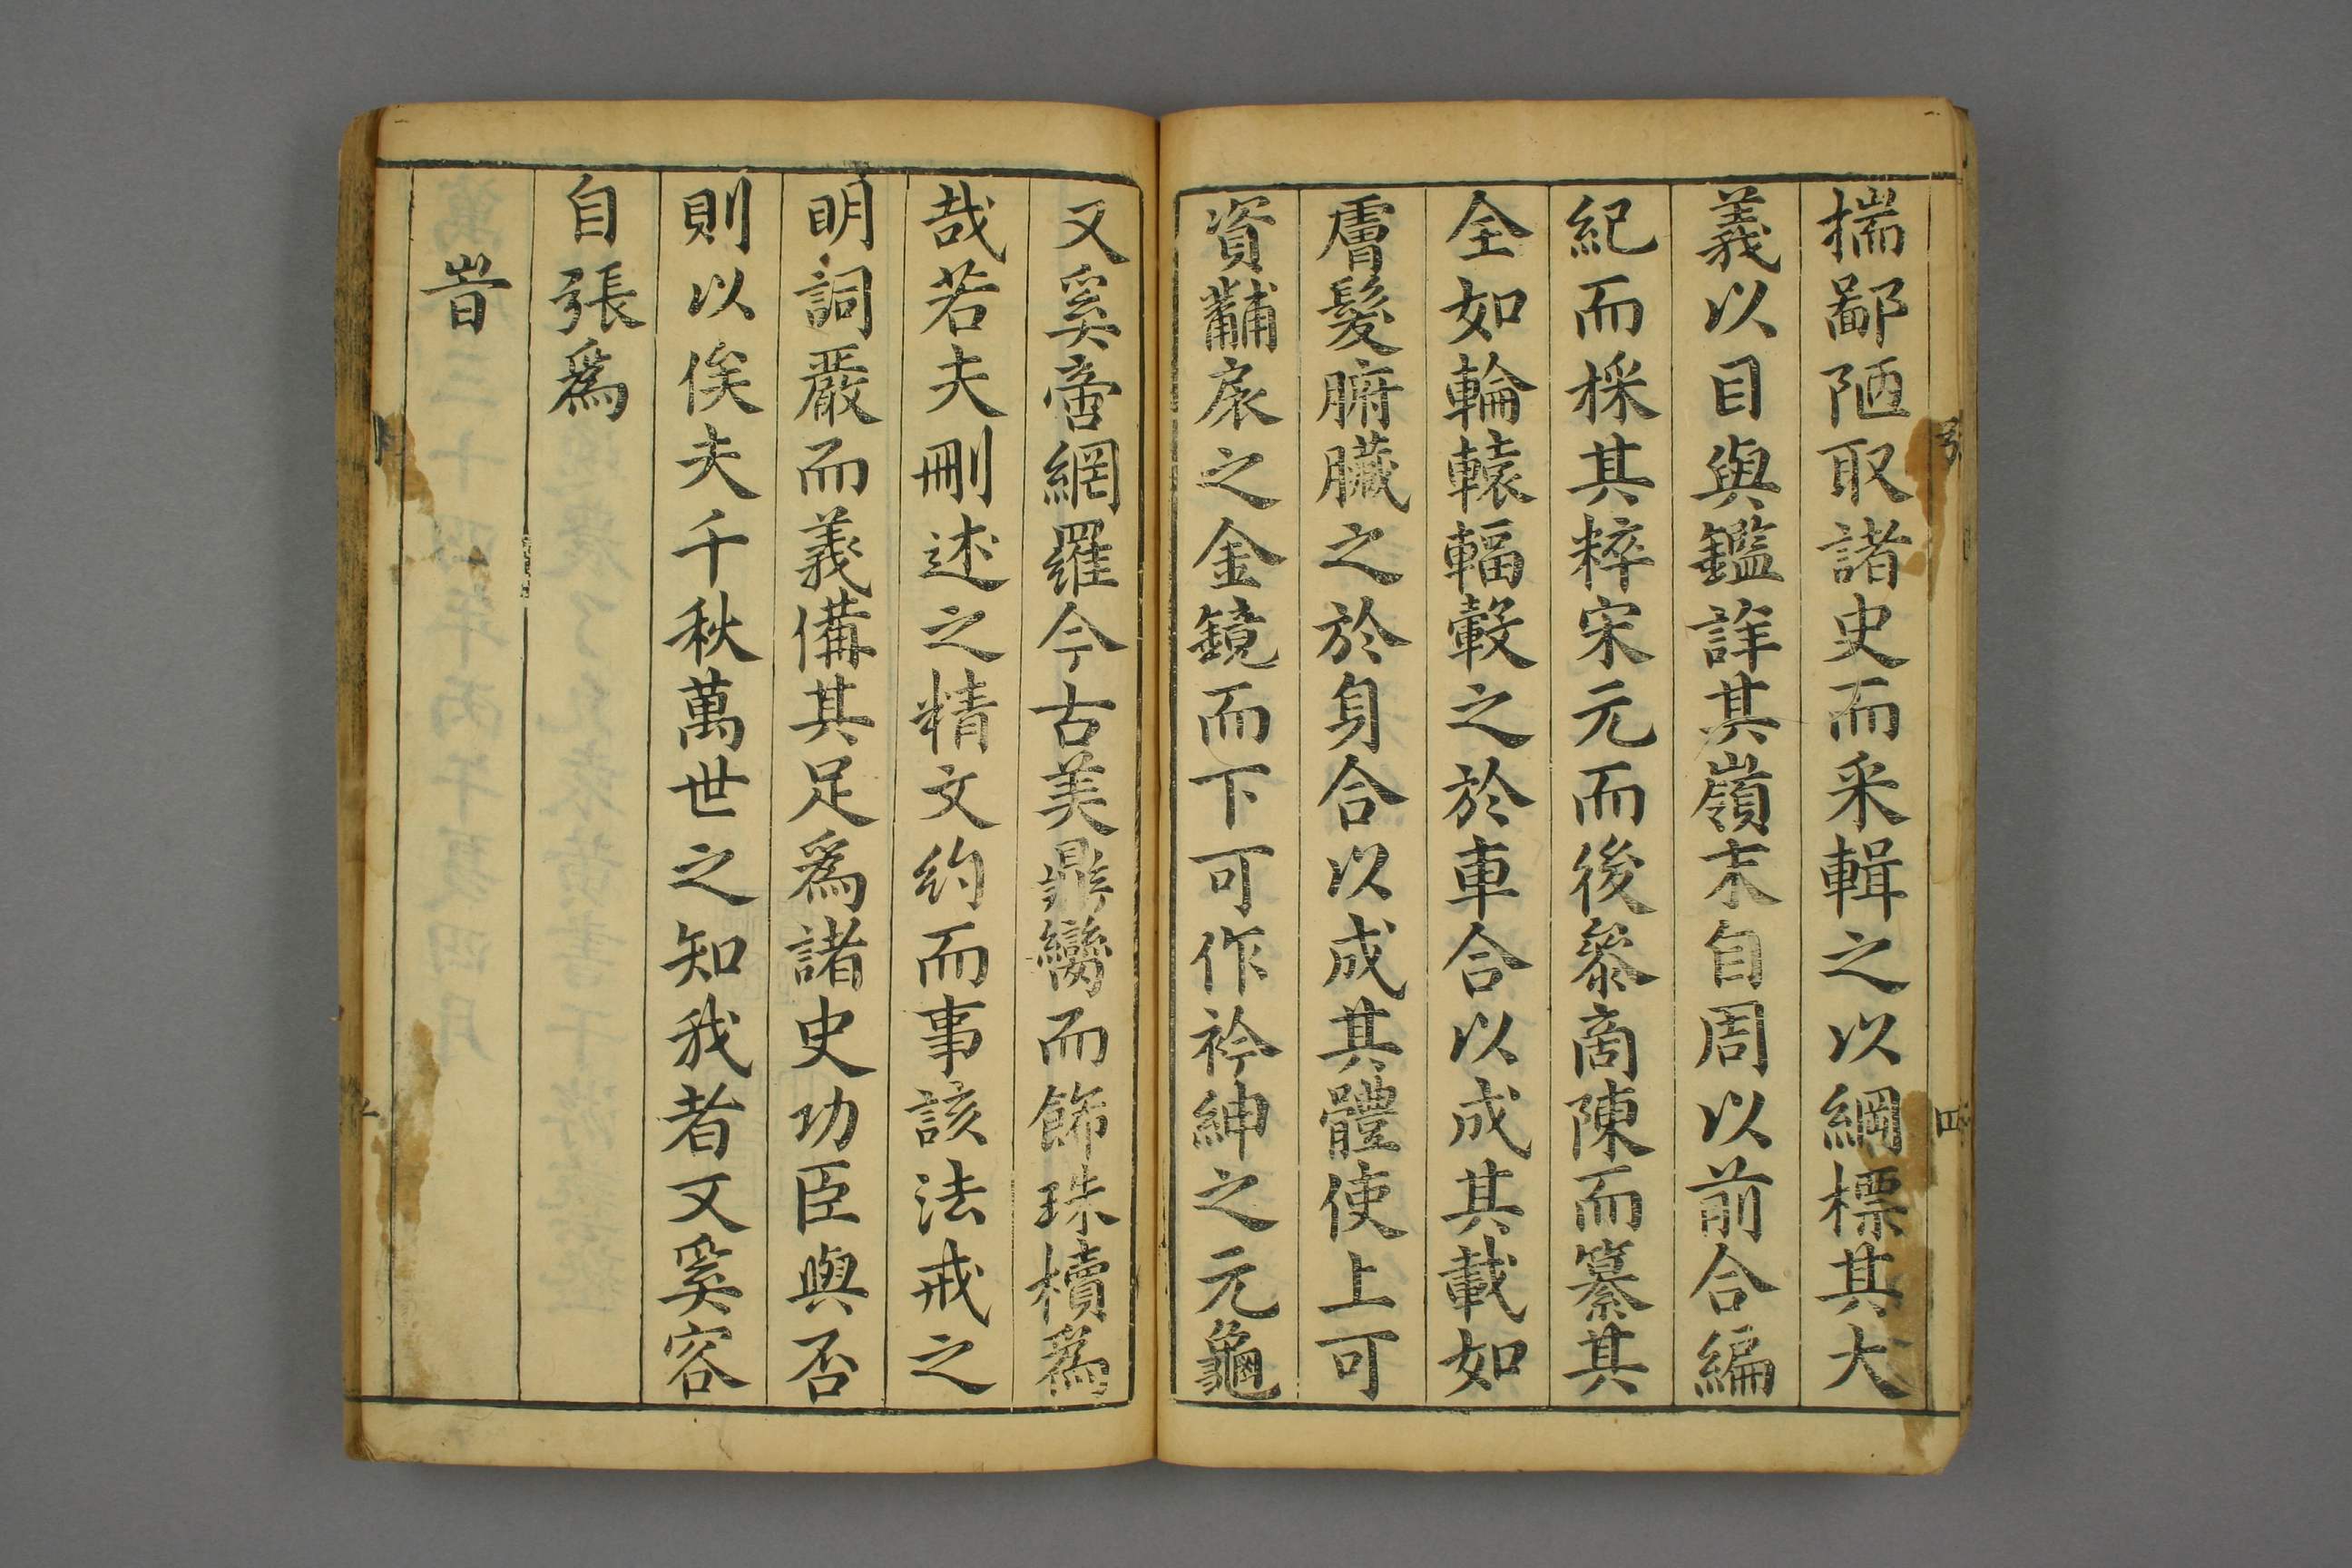 揣鄙陋取諸史而采輯之以綱標其大
義以目與鑑詳其巔末自周以前合編
紀而採其粹宋元而後叅啇陳而纂其
全如輪轅輻轂之於車合以成其載如
膚髮腑臟之於身合以成其體使上可
資黼扆之金鏡而下可作衿紳之元龜
又奚啻網羅今古美鼎臠而飾珠櫝爲
哉若夫刪述之精文約而事該法戒之
明詞嚴而義備其足爲諸史功臣與否
則以俟夫千秋萬世之知我者又奚容
自張爲
旹
四